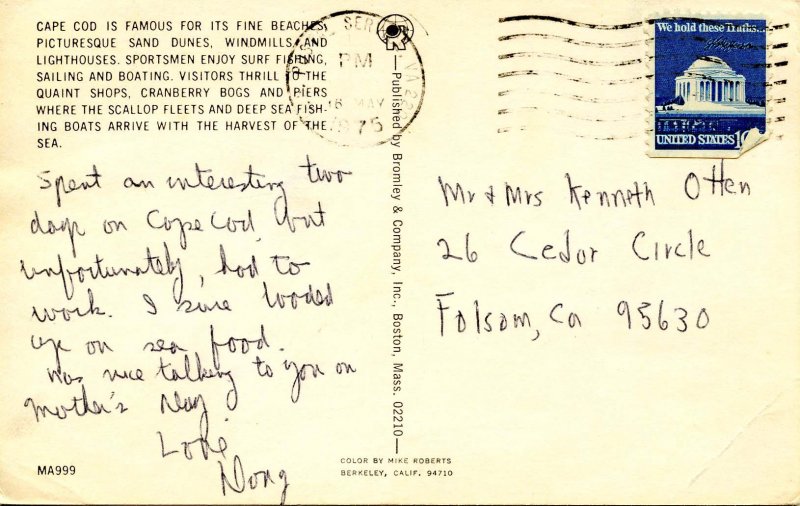 CAPE COD IS FAMOUS FOR ITS FINE BEACHES,
PICTURESQUE SAND DUNES, WINDMILLS AND
LIGHTHOUSES. SPORTSMEN ENJOY SURF FISHING,
SAILING AND BOATING. VISITORS THRILL TO THE
QUAINT SHOPS, CRANBERRY BOGS AND PIERS
WHERE THE SCALLOP FLEETS AND DEEP SEA FISH-
ING BOATS ARRIVE WITH THE HARVEST OF THE
SEA.
Spent an interesting two
days on Cape Cod but
unfortunately, had to
work. I sure loaded
up on sea food.
Was nice talking to you on
Mother's Day
Love,
Doug
MA999
PM
16 MAY
1975
VA 22
Published by Bromley & Company, Inc., Boston, Mass. 02210
COLOR BY MIKE ROBERTS
BERKELEY, CALIF. 94710
We hold these Truths...
UNITED STATES 10
Mr & Mrs Kenneth Otten
26 Cedar Circle
Folsom, Ca 95630